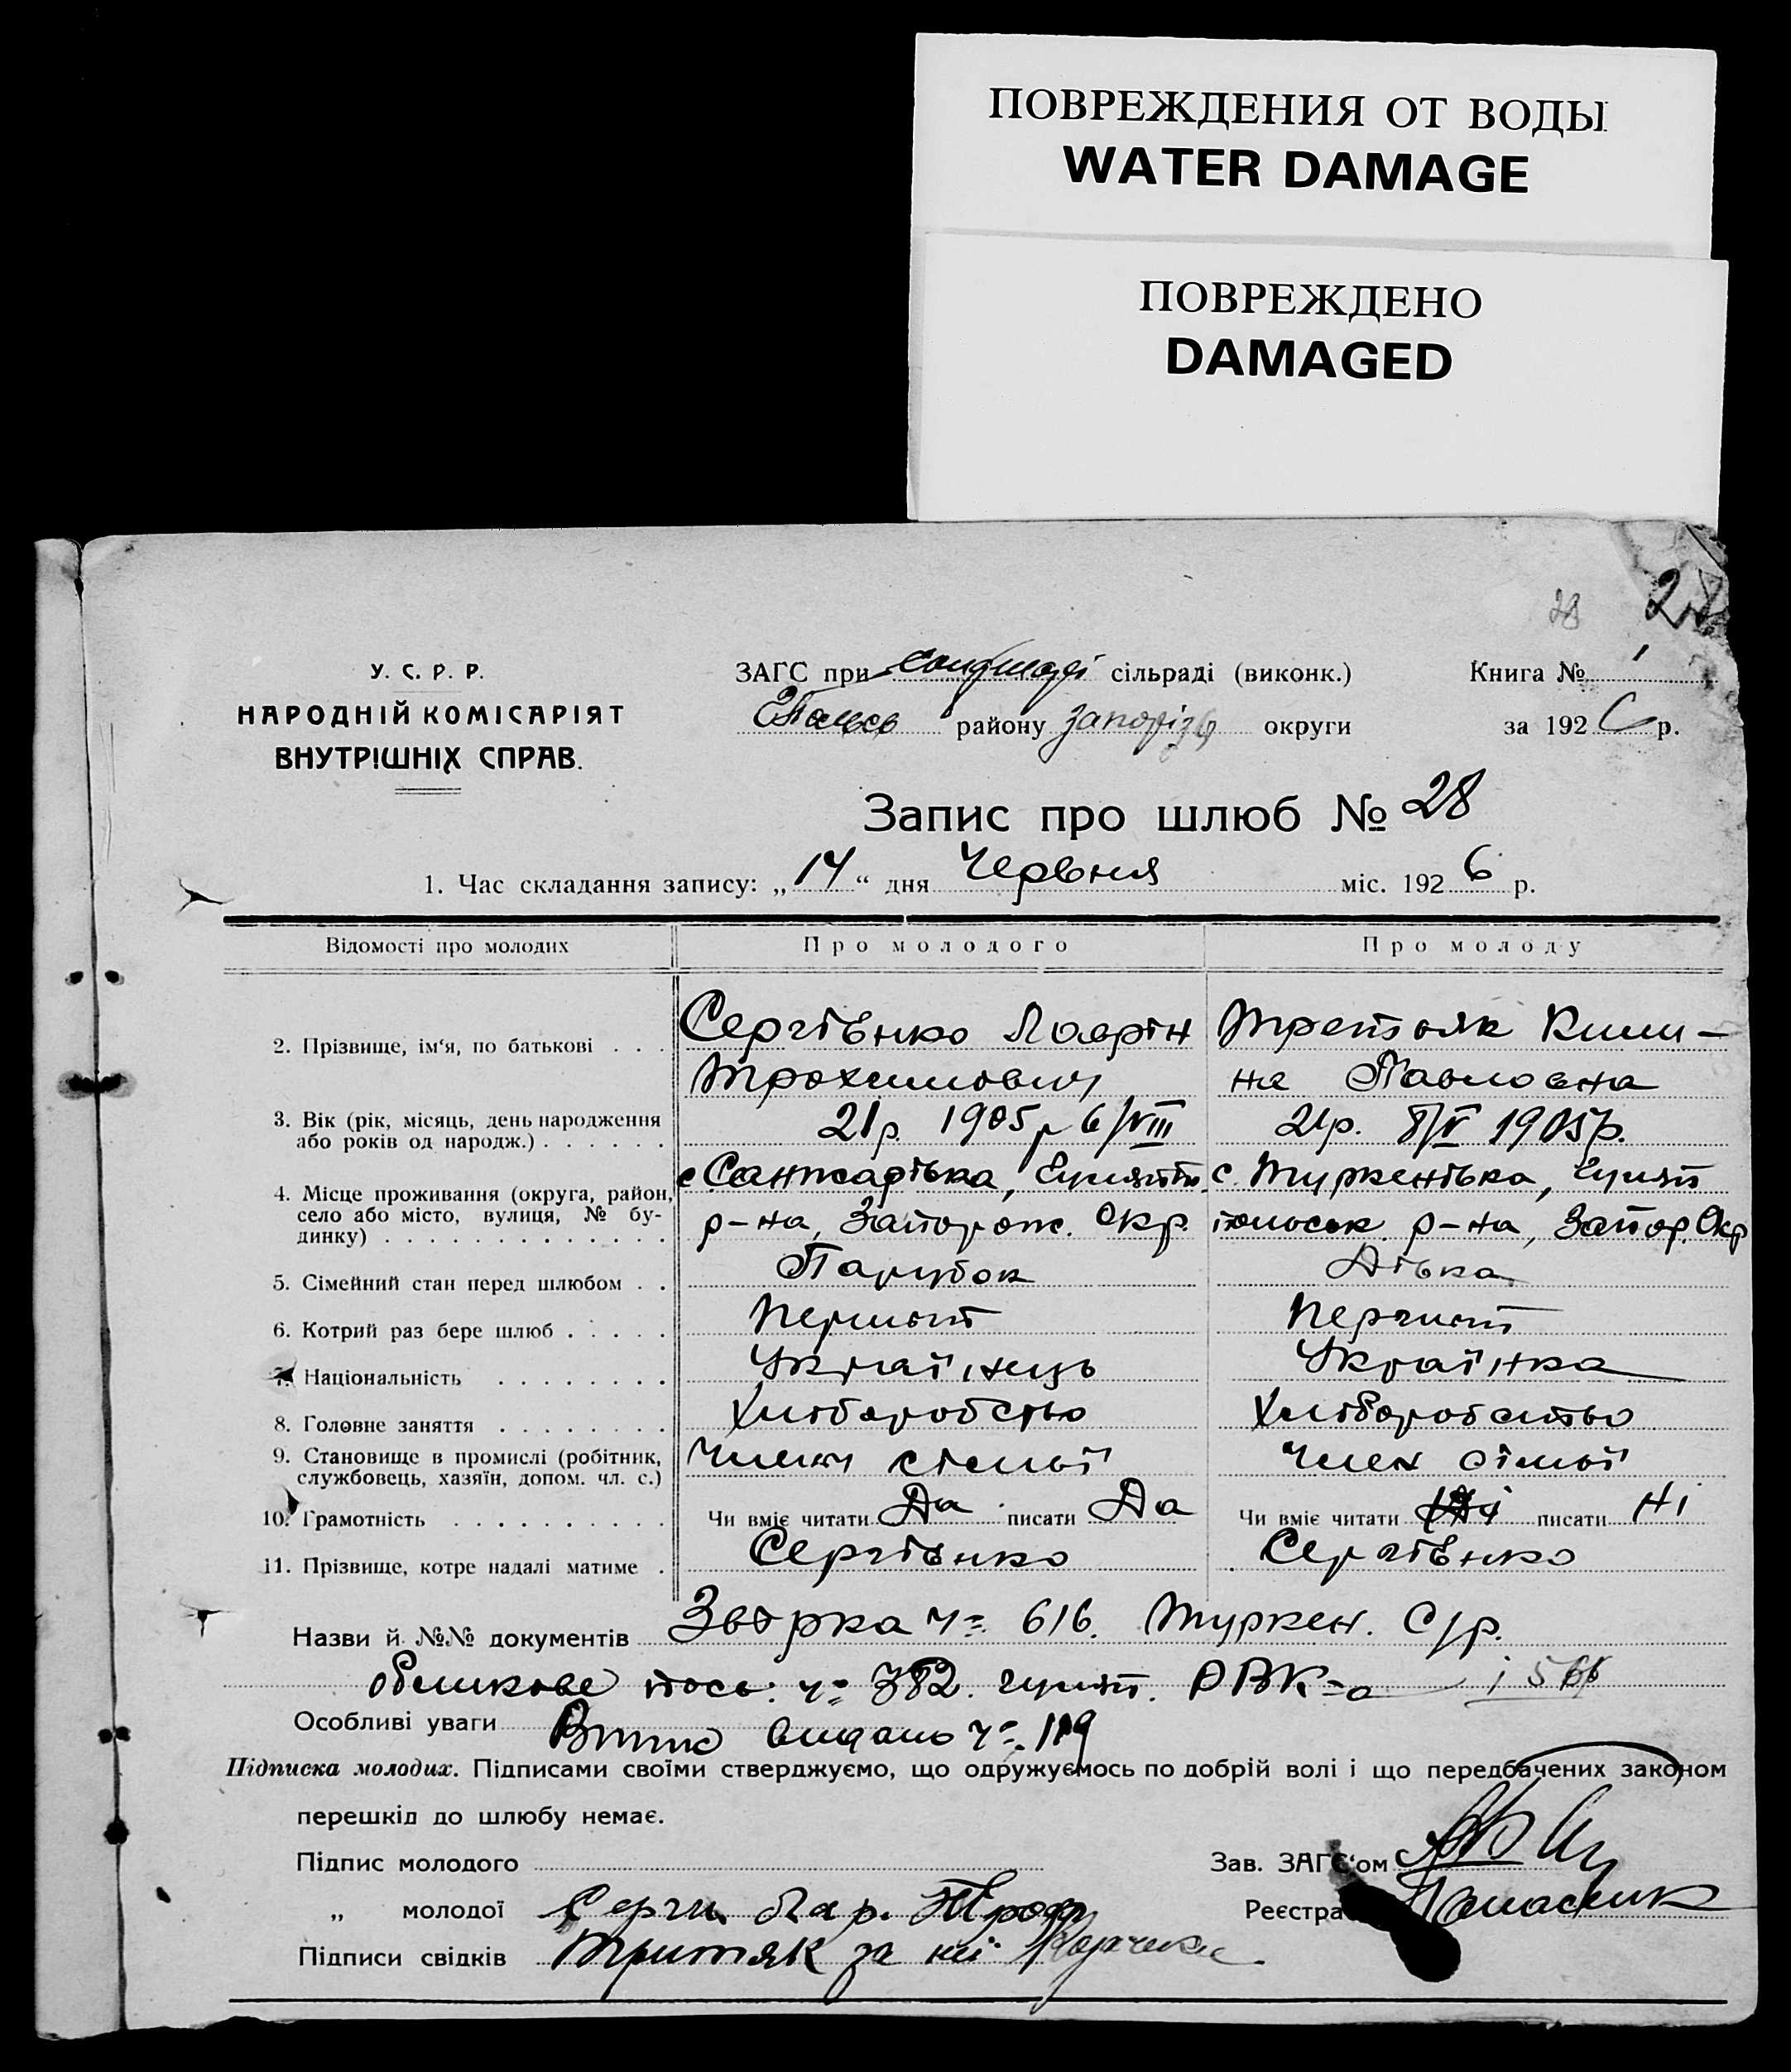 ПОВРЕЖДЕНИЯ ОТ ВОДЫ
WATER DAMAGE
ПОВРЕЖДЕНО
DAMAGED
28
У. С. Р. Р.
НАРОДНІЙ КОМІСАРІЯТ
ВНУТРІШНІХ СПРАВ.
ЗАГС при сільраді (виконк.)
району Запорізь округи
Книга № 1
за 1926 р.
Запис про шлюб № 28
1. Час складання запису: „14“ дня Червня міс. 1926 р.
Відомості про молодих Про молодого Про молоду
2. Прізвище, ім‘я, по батькові . . . Сергіенко Лаврін Третяк Кили-
Трохимович на Павловна
3. Вік (рік, місяць, день народження
або років од народж.) . . . . . . 21р. 1905р 6/VIII 21р. 8/V 1905р.
4. Місце проживання (округа, район, с Санжарівка, Гуляйп. с. Туркенівка, Гуляй
село або місто, вулиця, № бу- р-на, Запорож. Окр. польськ. р-на, Запор. Окр
динку) . . . . . . . . . . . . .
5. Сімейний стан перед шлюбом . . Парубок Дівка
6. Котрий раз бере шлюб . . . . . Перший Перший
7. Національність . . . . . . . . Українець Українка
8. Головне заняття . . . . . . . . Хліборобство Хліборобство
9. Становище в промислі (робітник,
службовець, хазяїн, допом. чл. с.) Член сімьї Член сімьї
10. Грамотність . . . . . . . . . . Чи вміє читати Да писати Да Чи вміє читати Ні писати Ні
11. Прізвище, котре надалі матиме . Сергіенко Сергіенко
Назви й №№ документів Звірка ч= 616. Туркен. С/р.
облікове посв. ч= 382. Гуляй. РВК=а
Особливі уваги Витяг видано ч=. 119
Підписка молодих. Підписами своїми стверджуємо, що одружуємось по добрій волі і що передбачених законом
перешкід до шлюбу немає.
Підпис молодого
Зав. ЗАГС‘ом
„ молодої Серги Лар. Троф
Реєстра Панасюк
Підписи свідків Тритяк за неї